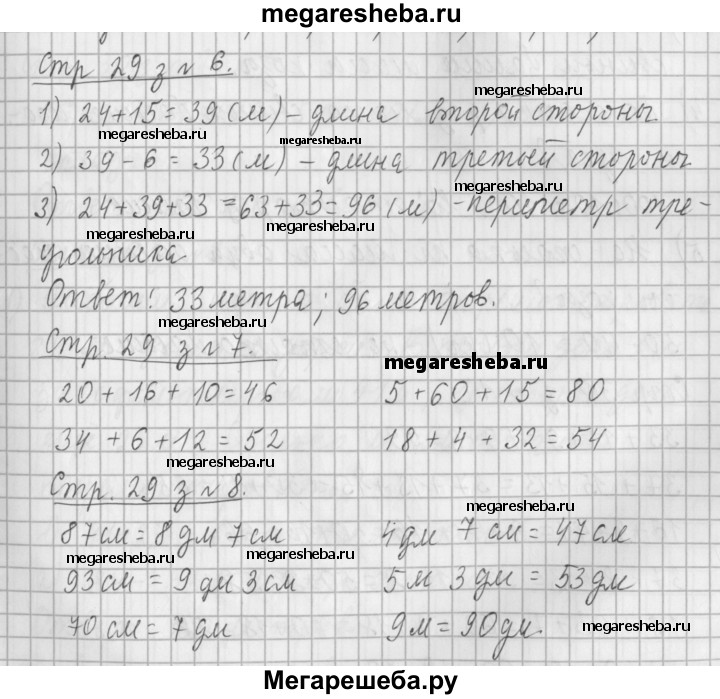 megaresheba.ru
Стр 29 з № 6.
megaresheba.ru
1) 24+15=39 (м) - длина второй стороны.
megaresheba.ru
megaresheba.ru
2) 39-6=33(м) - длина третьей стороны
megaresheba.ru
3) 24+39+33=63+33=96 (м) - периметр тре-
megaresheba.ru
угольника
Ответ! 33 метра; 96 метров.
megaresheba.ru
Стр. 29 з № 7.
megaresheba.ru
20+16+10=46 5+60+15=80
34+6+12=52 18+4+32=54
megaresheba.ru
Стр. 29 з № 8.
megaresheba.ru
87см=8 дм 7 см 4 дм 7 см=47 см
megaresheba.ru megaresheba.ru
93 см=9 дм 3 см 5 м 3 дм=53 дм
70 см=7 дм 9 м=90 дм.
megaresheba.ru
Мегарешеба.ру